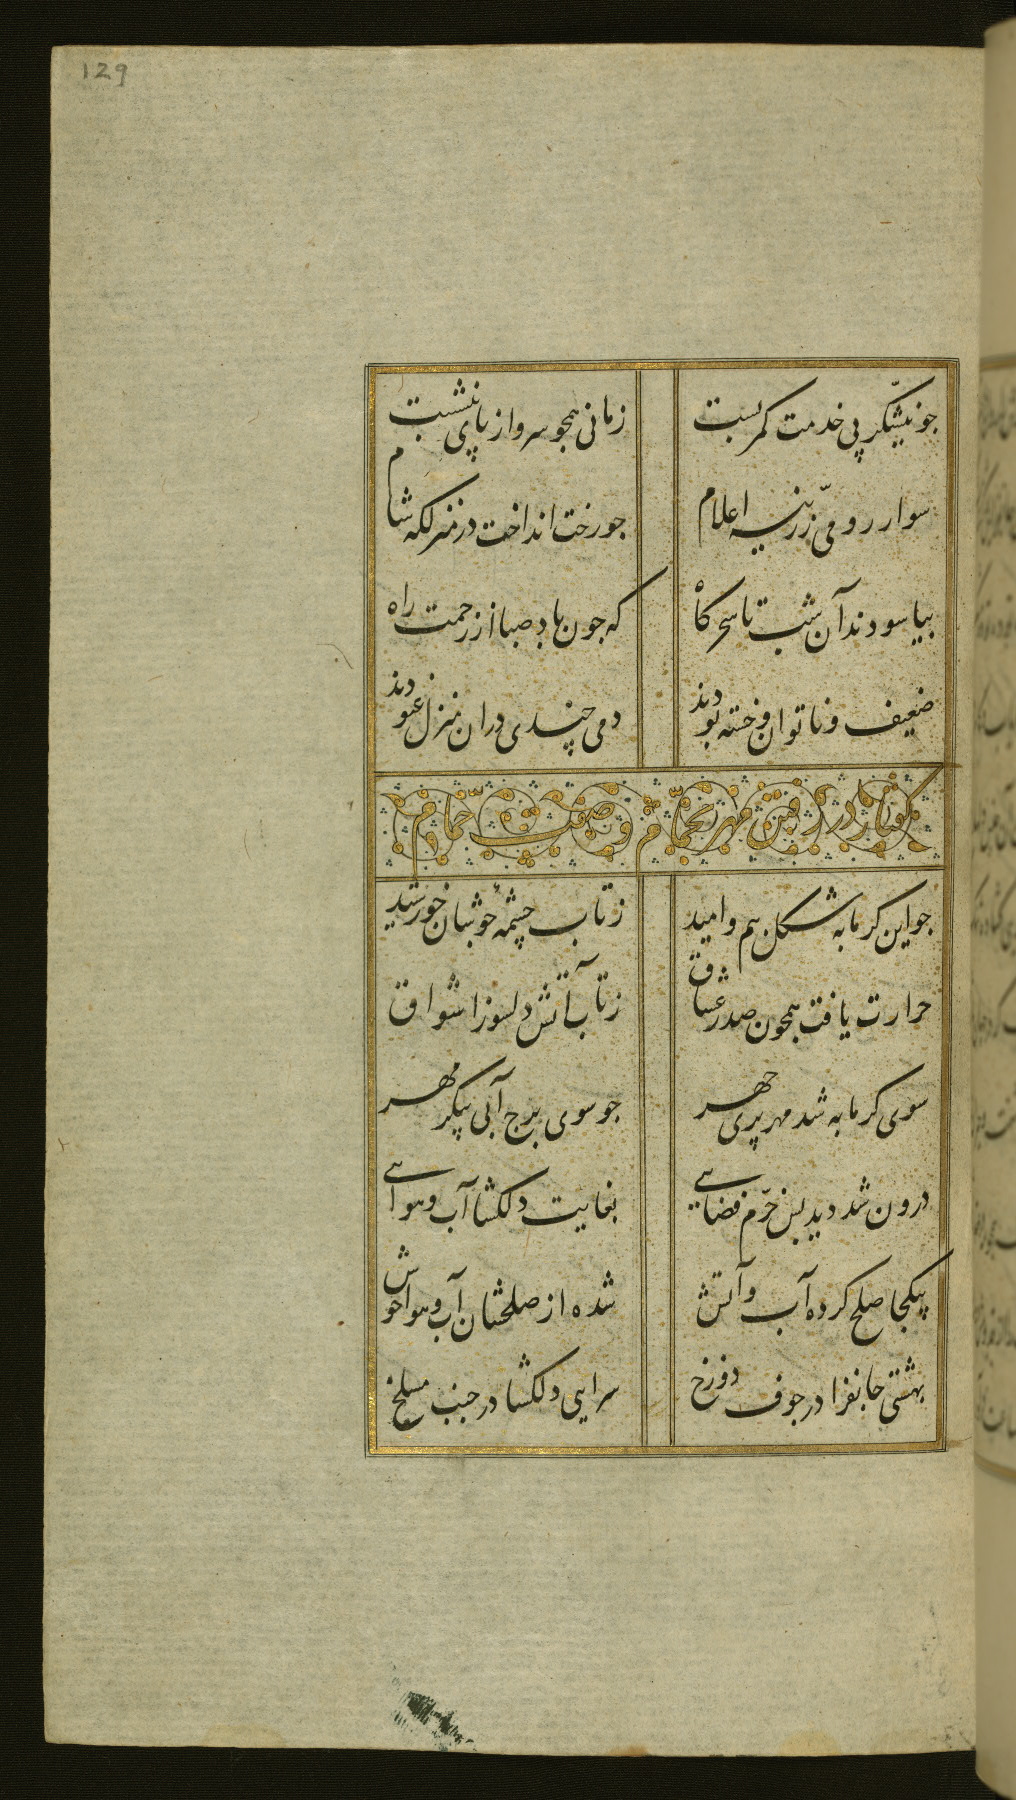 129
جو نیشکر پی خدمت کمر بست زمانی همجو سرو از پای ننشست
سوار رومی زرینه اعلام جو رخت انداخت در منزلکه شام
بیاسودند آن شب تا سحرکاه که جون باد صبا از زحمت راه
ضعیف و ناتوان و خسته بودند دمی چندی دران منزل غنودند
گفتار در رفتن مهر بحمام و صفت حمام
جو این کرمابه شکل بیم و امید ز تاب چشمهٔ جوشان خورشید
حرارت یافت همجون صدر عشاق ز تاب آتش دلسوز اشواق
سوی کرمابه شد مهر پری جهر جو سوی برج آبی پیکر مهر
درون شد دید بس خرّم فضایی بغایت دلکشا آب و هوایی
بیکجا صلح کرده آب و آتش شده از صلحشان آب و هوا خوش
بهشتی جانفزا در جوف دوزخ سرایی دلکشا در جنب مسلخ